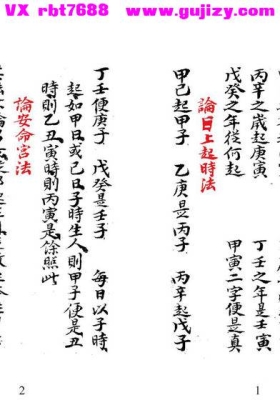 VX rbt7688 www.gujizy.com
丙辛之歲起庚寅 丁壬之年是壬寅
戊癸之年從何起 甲寅二字便是真
論日上起時法
甲己起甲子 乙庚是丙子 丙辛起戊子
丁壬便庚子 戊癸是壬子 每日以子時
起如甲日或己日子時生人則甲子便是丑
時則乙丑寅時則丙寅是餘照此
論安命宮法
2
1